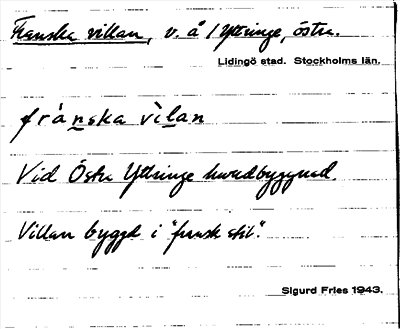 Franska villan, v. å / Yttringe, östra.
Lidingö stad. Stockholms län.
frànska vìlan
Vid Östra Yttringe huvudbyggnad.
Villan byggd i "fransk stil".
Sigurd Fries 1943.